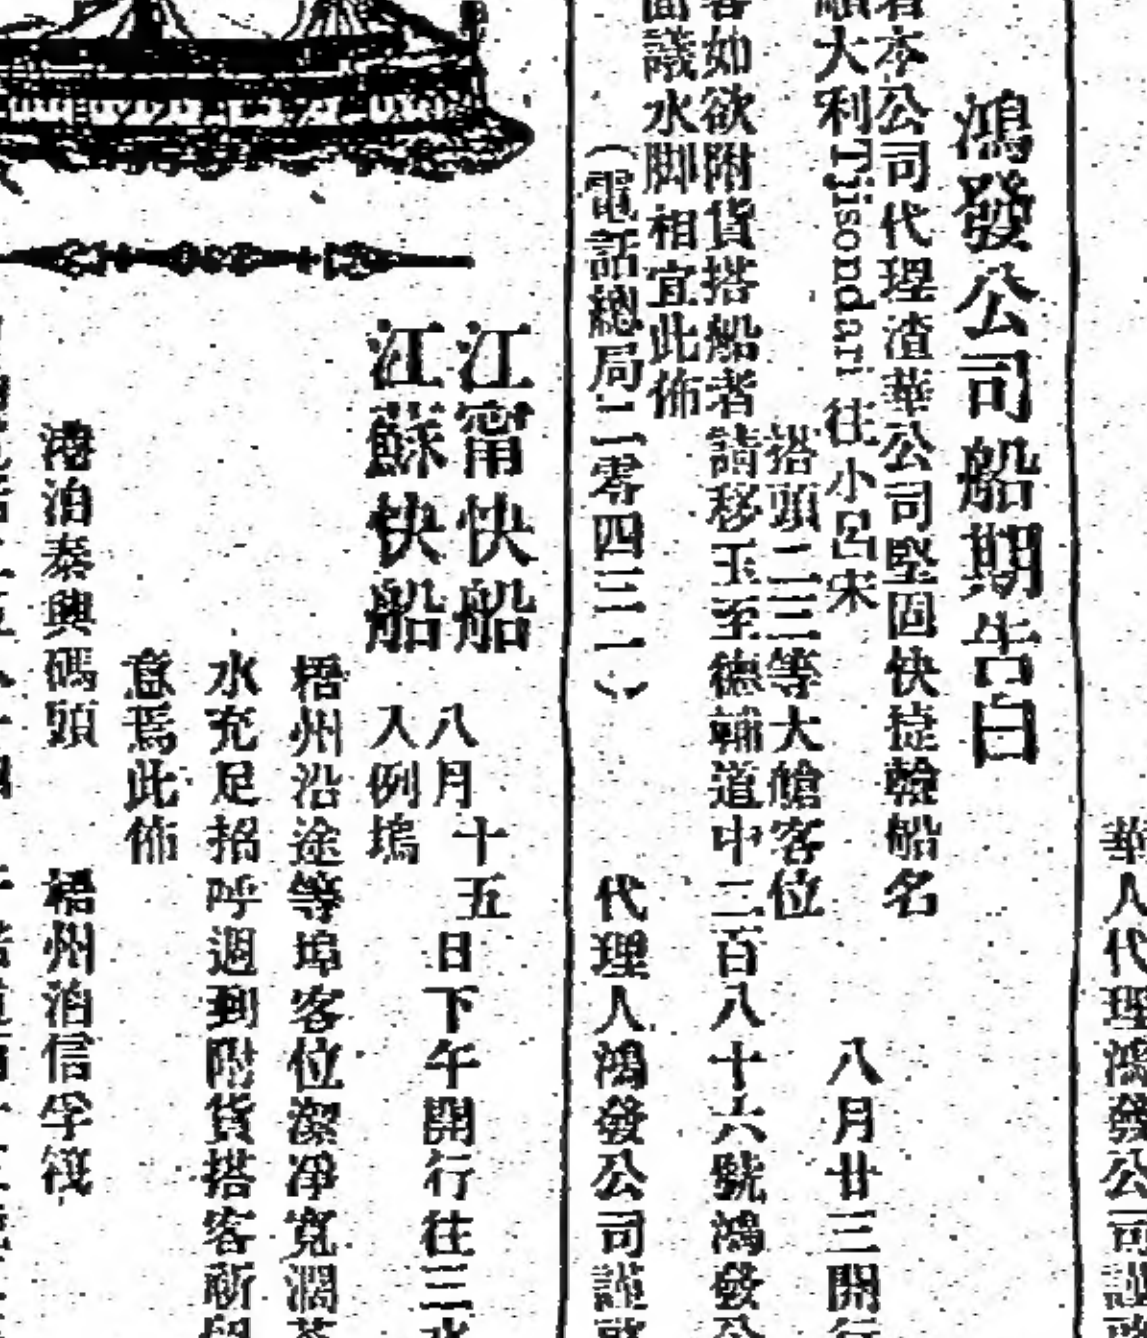 華人代理鴻發公司謹啟
鴻發公司船期告白
者本公司代理渣華公司堅固快捷輪船名
順大利Tjisondari 往小呂宋 八月廿三開行
搭頭二三等大艙客位
客如欲附貨搭船者請移玉至德輔道中二百八十六號鴻發公
面議水脚相宜此佈
(電話總局二零四三一) 代理人鴻發公司謹啟
江甯快船 八月十五日下午開行往三水
江蘇快船 入例塢
梧州沿途等埠客位潔凈寬濶茶
水充足招呼週到附貨搭客祈留
意焉此佈
港泊泰興碼頭 梧州泊信孚筏